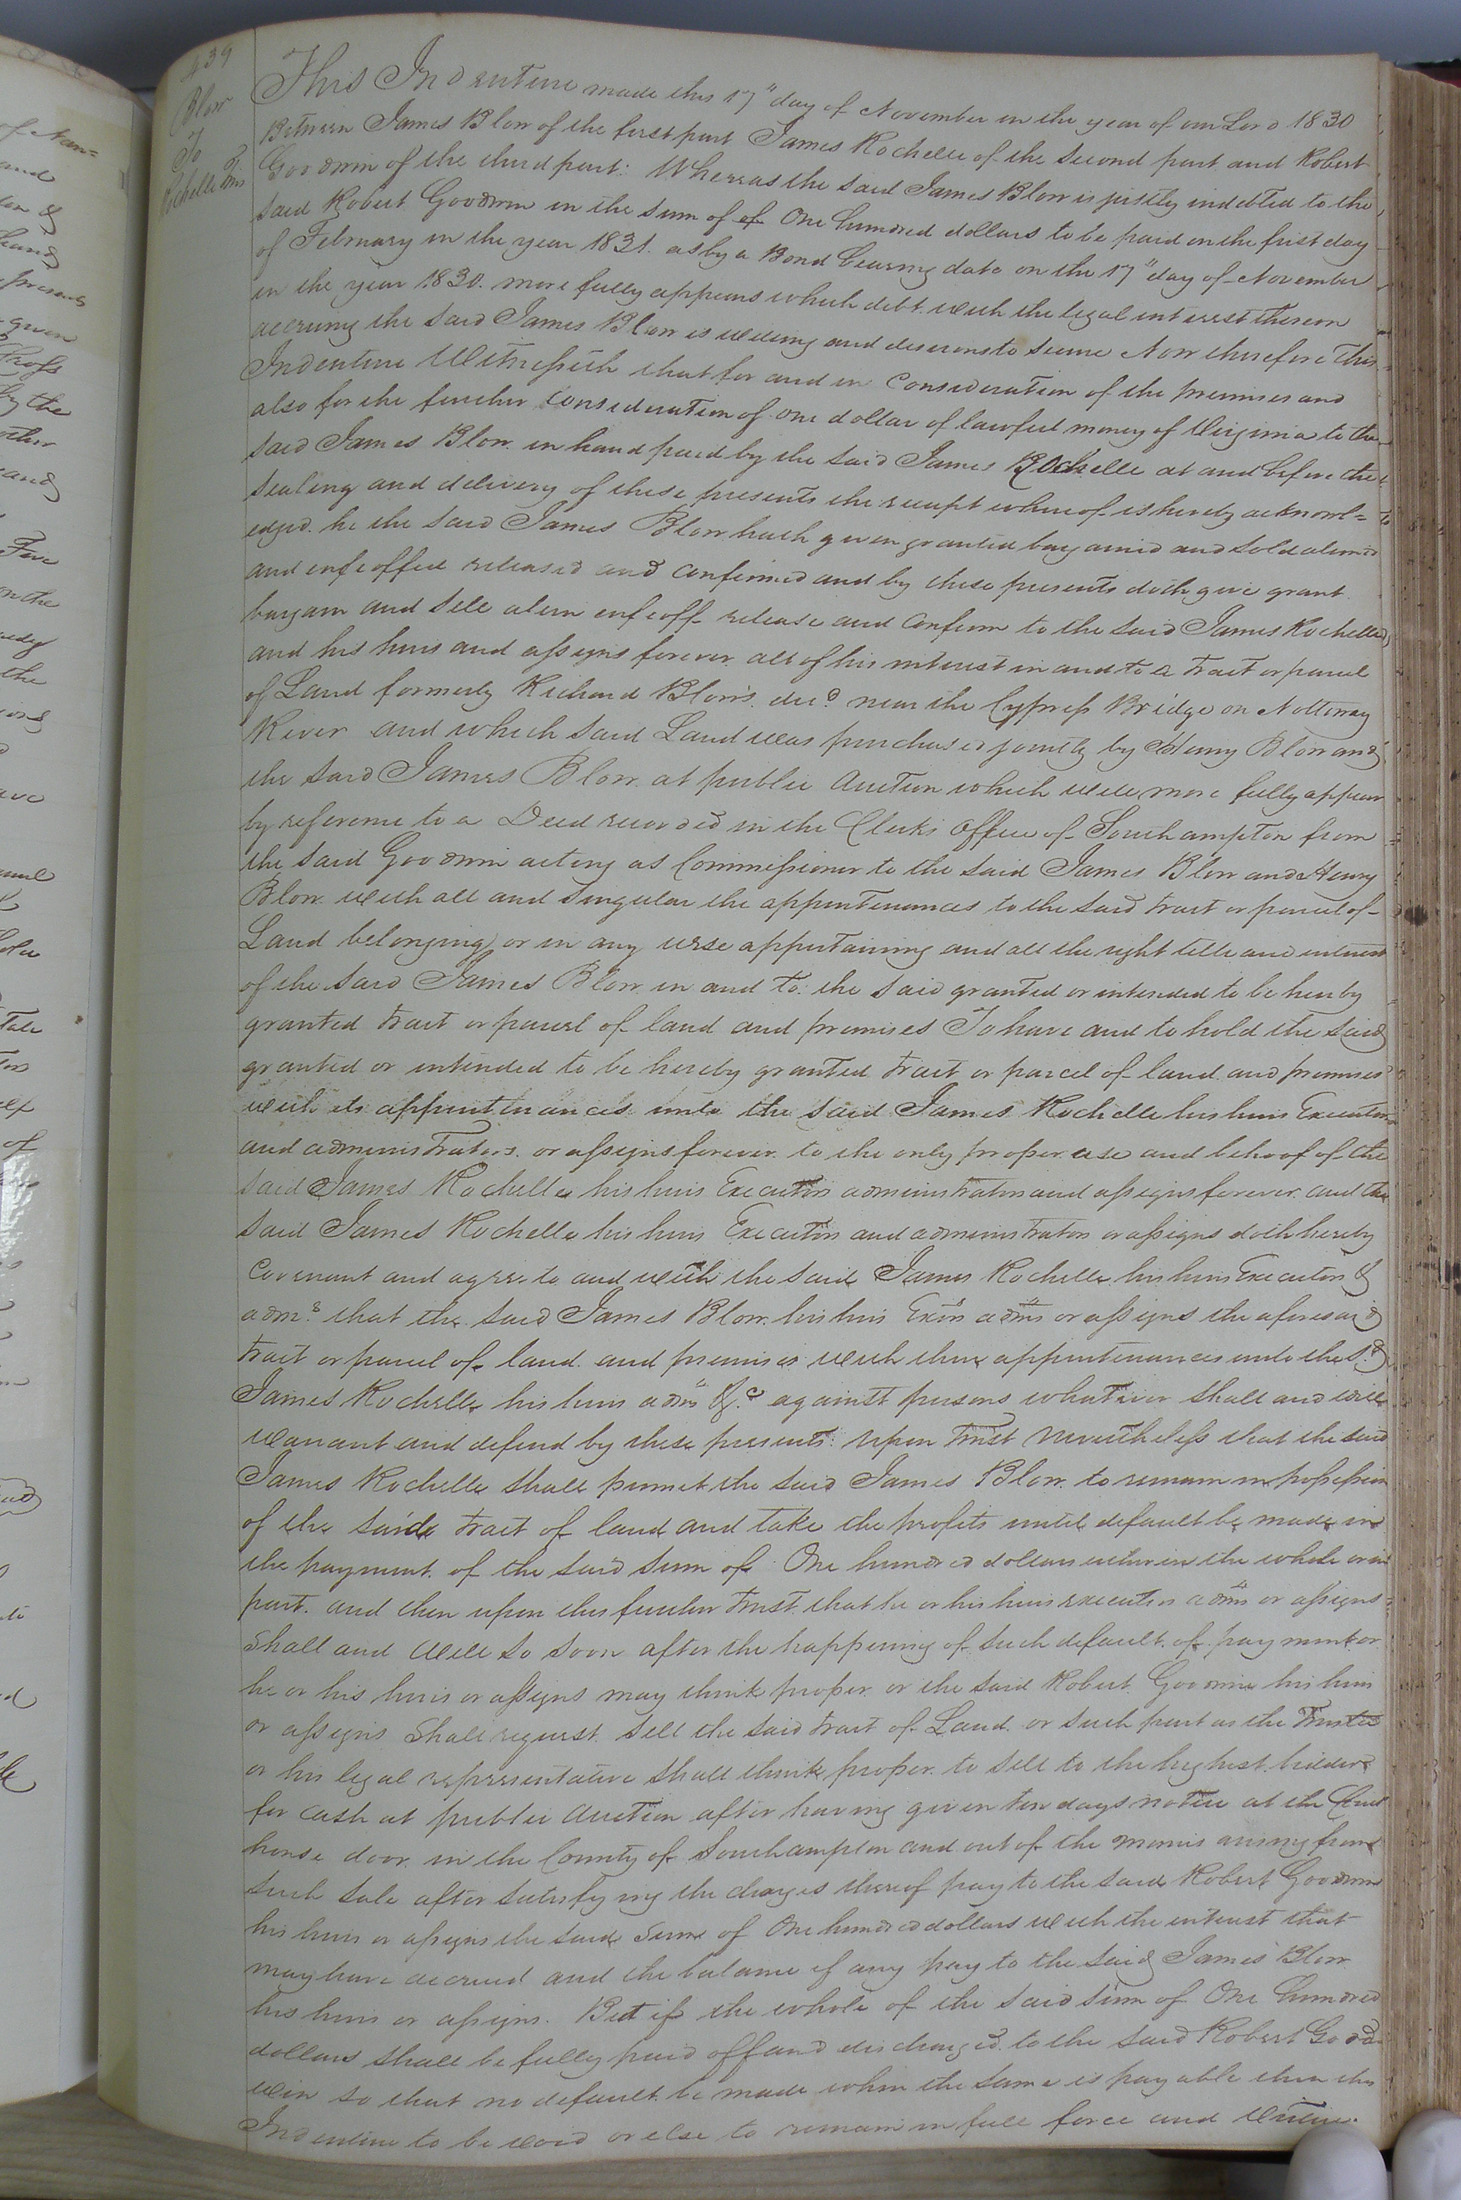 439
Blow
To
Rochelle Trus
This Indenture made this 17" day of November in the year of our Lord 1830
Between James Blow of the first part James Rochelle of the second part and Robert
Goodwin of the third part: Whereas the said James Blow is justly indebted to the
said Robert Goodwin in the sum of of One hundred dollars to be paid on the first day
of February in the year 1831. as by a Bond bearing date on the 17" day of November
in the year 1830. more fully appears which debt with the legal interest thereon
accruing the said James Blow is willing and desirous to secure Now therefore This
Indenture Witnesseth that for and in Consideration of the premises and
also for the further Consideration of one dollar of lawful money of Virginia to the
said James Blow in hand paid by the said James Rochelle at and before the
sealing and delivery of these presents the receipt whereof is hereby acknowl=
edged. he the said James Blow hath given granted bargained and sold aliened
and enfeoffed released and Confirmed and by these presents doth give grant
bargain and sell alien enfeoff release and Confirm to the said James Rochelle
and his heirs and assigns forever all of his interest in and to a tract or parcel
of Land formerly Richard Blow's decd near the Cypress Bridge on Nottoway
River and which said Land was purchased jointly by Henry Blow and
the said James Blow at public Auction which will more fully appear
by reference to a Deed recorded in the Clerk's Office of Southampton from
the said Goodwin acting as Commissioner to the said James Blow and Henry
Blow with all and singular the appurtenances to the said tract or parcel of
Land belonging or in any wise appertaining and all the right title and interest
of the said James Blow in and to the said granted or intended to be hereby
granted tract or parcel of land and premises To have and to hold the said
granted or intended to be hereby granted tract or parcel of land and premises
with its appurtenances unto the said James Rochelle his heirs Executors
and administrators or assigns forever to the only proper use and behoof of the
said James Rochelle his heirs Executors administrators and assigns forever. and the
said James Rochelle his heirs Executors and administrators or assigns doth hereby
Covenant and agree to and with the said James Rochelle his heirs Executors &
adms that the said James Blow his heirs Exors adms or assigns the aforesaid
tract or parcel of land and premises with their appurtenances unto the sd
James Rochelle his heirs adms &c against persons whatever shall and will
warrant and defend by these presents: Upon Trust Nevertheless that the said
James Rochelle shall permit the said James Blow to remain in possession
of the said tract of land and take the profits until default be made in
the payment of the said sum of One hundred dollars either in the whole or in
part. and then upon this further trust that he or his heirs executors adms or assigns
shall and will so soon after the happening of such default of payment or
he or his heirs or assigns may think proper or the said Robert Goodwin his heirs
or assigns shall request sell the said tract of Land or such part as the Trustee
or his legal representative shall think proper to sell to the highest bidder
for Cash at public Auction after having given ten days notice at the Court
house door in the County of Southampton and out of the monies arising from
such sale after satisfying the charges thereof pay to the said Robert Goodwin
his heirs or assigns the said Sum of One hundred dollars with the interest that
may have accrued and the balance if any pay to the said James Blow
his heirs or assigns. But if the whole of the said sum of One hundred
dollars shall be fully paid off and discharged to the said Robert Good
win so that no default be made when the same is payable then this
Indenture to be void or else to remain in full force and virtue.